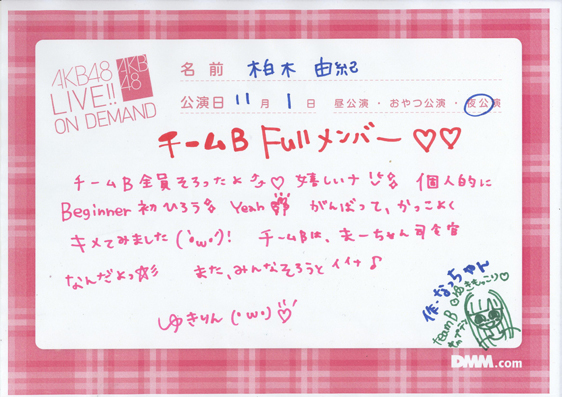 AKB48
LIVE!!
ON DEMAND
AKB
48
名前 柏木 由紀
公演日 11月1日 昼公演・おやつ公演・夜公演
チームB Fullメンバー♡♡
チームB全員そろったよ♡ 嬉しいナ 個人的に
Beginner初ひろう Yeah がんばって、かっこよく
キメてみました(・ω・)! チームBは、まーちゃん司令官
なんだよっ☆彡 また、みんなそろうとイイナ♪
ゆきりん(・ω・)♡
作・なっちゃん
teamB
DMM.com